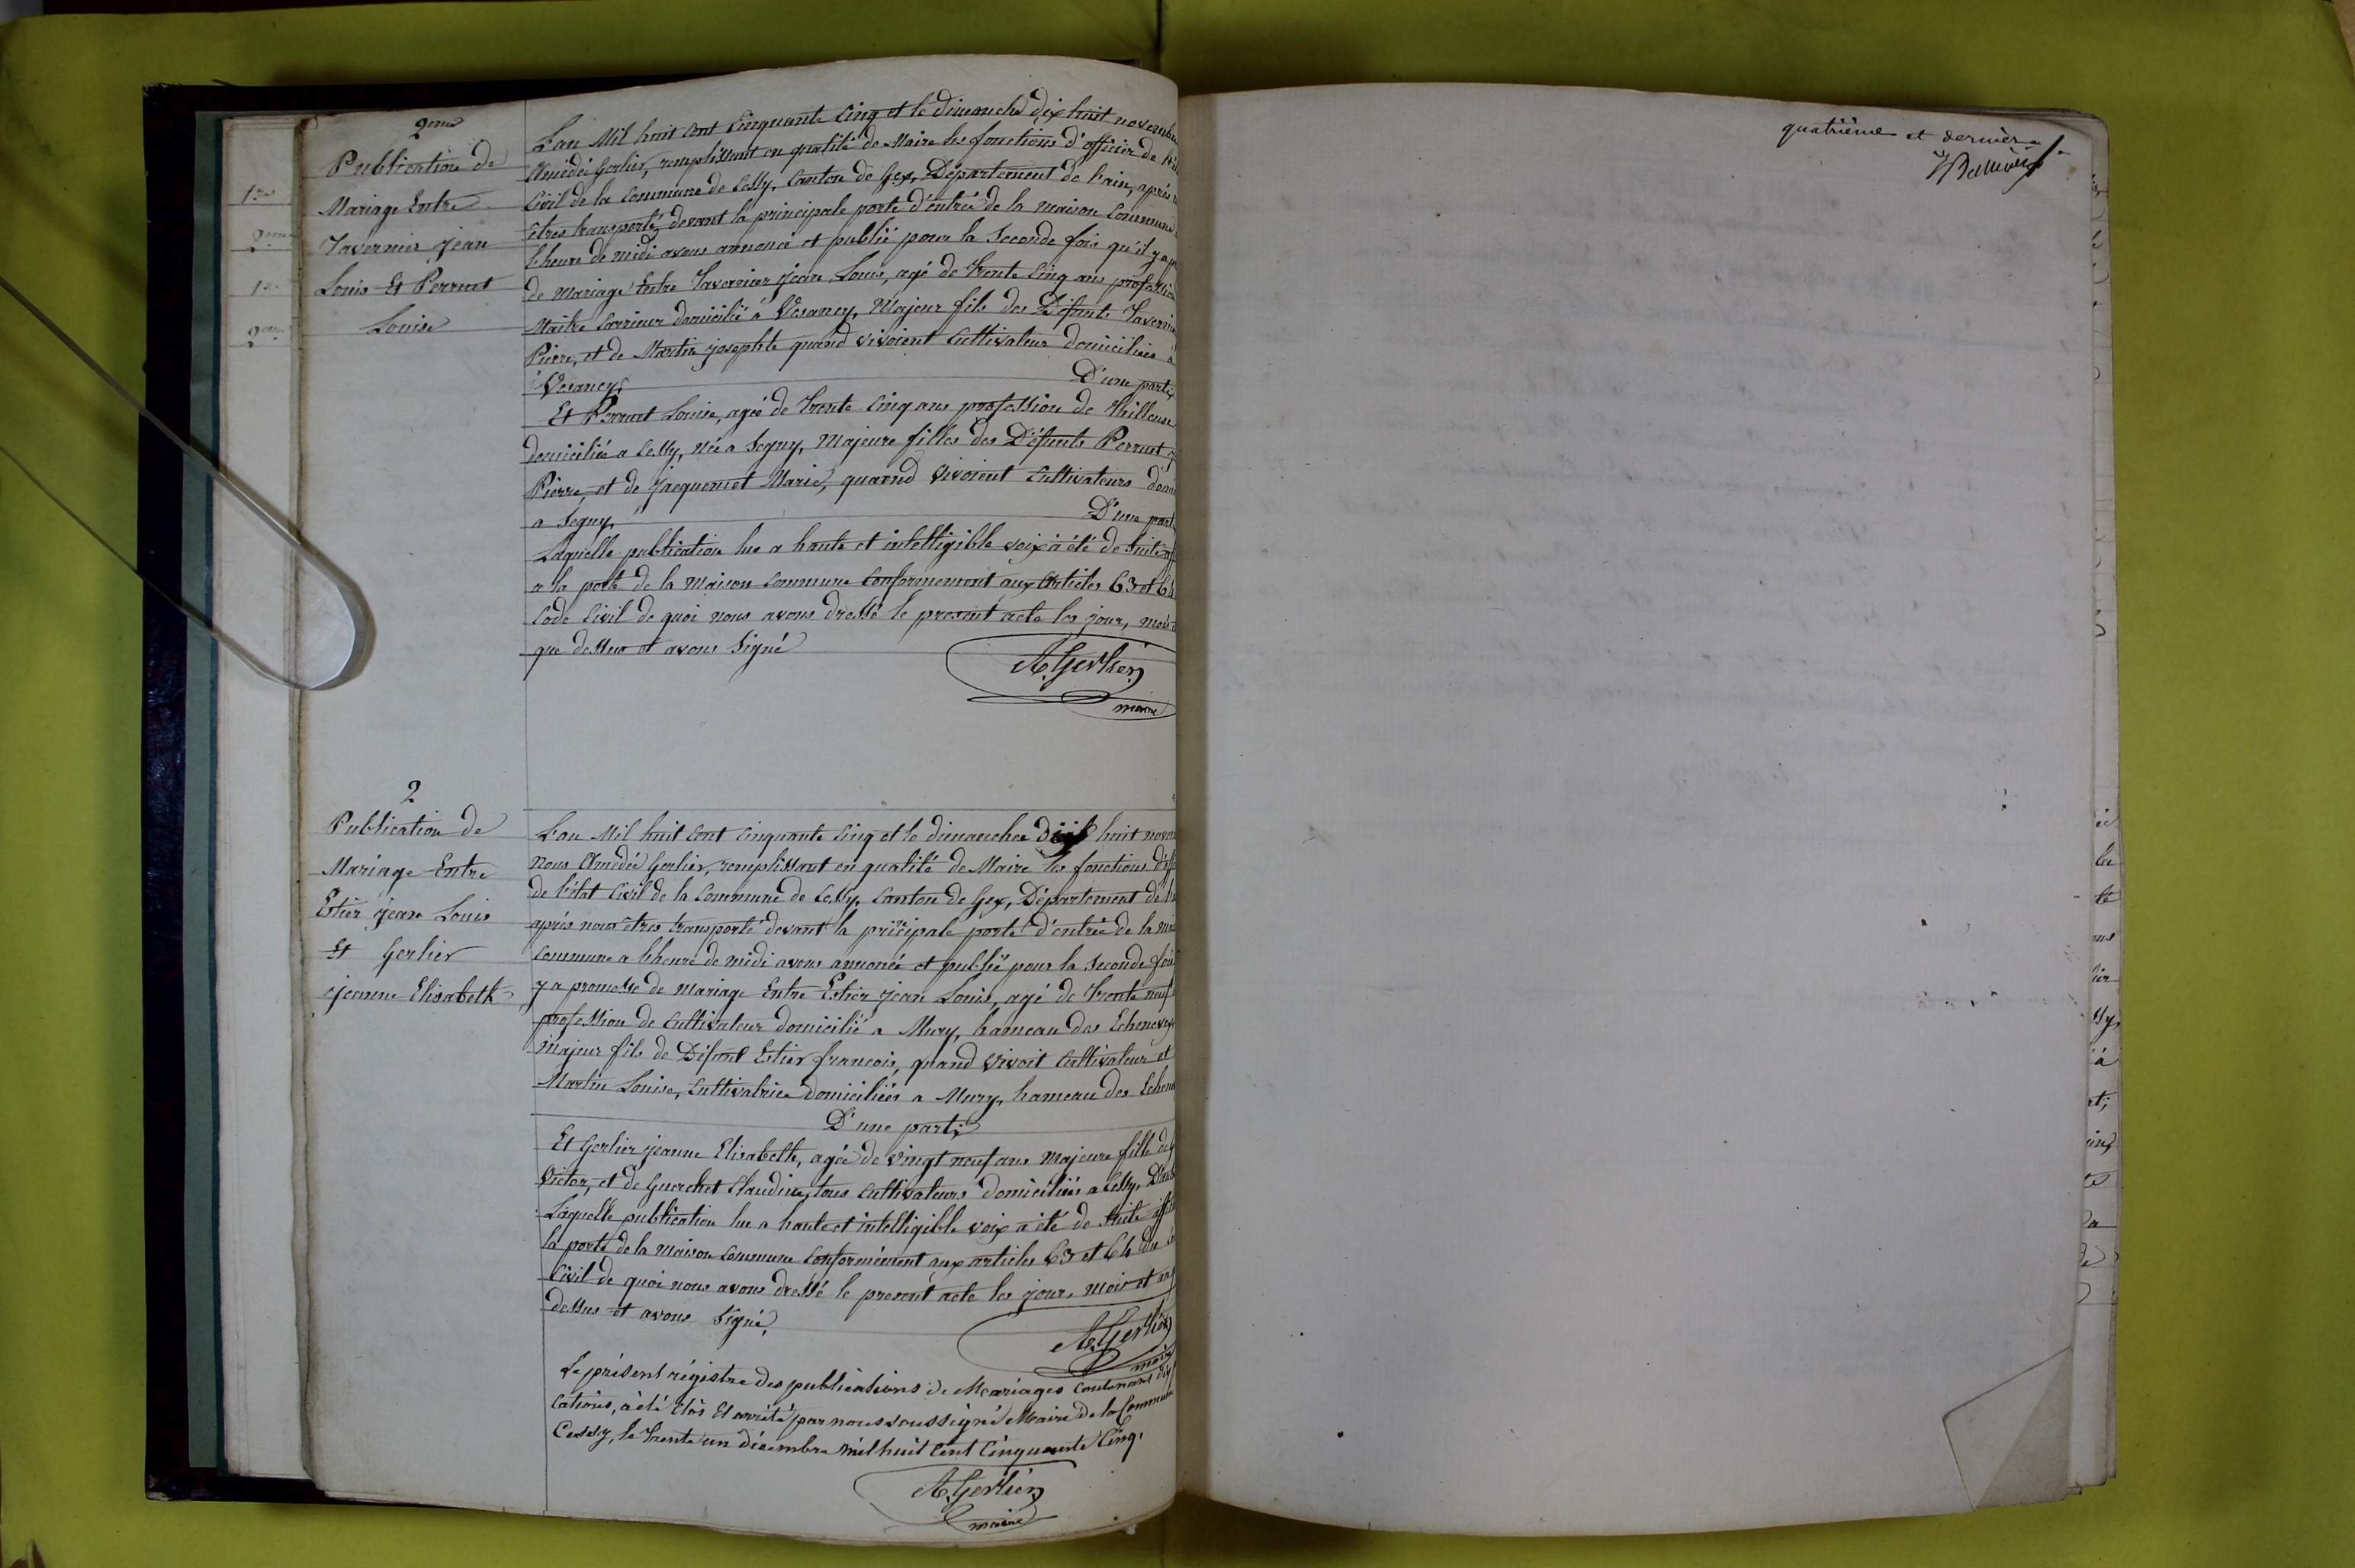 2eme
Publication de
Mariage Entre
Tavernier jean
Louis Et Perruet
Louise
L'an Mil huit Cent Cinquante Cinq et le Dimanche dix huit novembre
Amédé Gerlier, remplissant en qualité de Maire les fonctions d'officier de
Civil de la Commune de Cessy, Canton de Gex, Département de l'ain, après
êtres transporté devant la principale porte d'entrée de la maison Commune
l'heure de midi avons annoncé et publié pour la Seconde fois qu'il y a
de Mariage Entre Tavernier jean Louis, agé de trente Cinq ans profession
Maitre Carrieur domicilié à Vesancy, Majeur fils des Défunts Tavernier
Pierre, et de Martin josephte quand vivoient Cultivateur domiciliés à
Vesancy, D'une part;
Et Perruet Louise, agée de trente Cinq ans profession de
domiciliée a Cessy, née a Segny, Majeure filles des Défunts Perruet
Pierre, et de Jacquemet Marie, quand vivoient Cultivateurs
a Segny, D'une part
Laquelle publication lue a haute et intelligible voix à été de Suite
a la porte de la Maison Commune Conformement aux Articles 63 et 64
Code Civil de quoi nous avons dressé le present acte les jour, mois
que dessus et avons Signé
A. Gerlier
maire
2
Publication de
Mariage Entre
Estier jean Louis
Et Gerlier
jeanne Elisabeth
L'an Mil huit Cent Cinquante Cinq et le dimanche Dix huit
Nous Amédé Gerlier, remplissant en qualité de Maire les fonctions
de l'état Civil de la Commune de Cessy, Canton de Gex, Département de
après nous êtres transporté devant la pricipale porte d'entrée de la
Commune a l'heure de midi avons annoncé et publié pour la Seconde fois
y a promesse de Mariage Entre Estier jean Louis, agé de trente neuf
profession de Cultivateur domicilié a Mury, hameau des Echenevex
Majeur fils de Défunt Estier françois, quand vivoit Cultivateur et
Martin Louise, Cultivatrice domiciliées a Mury, hameau des
D'une part;
Et Gerlier jeanne Elisabeth, agée de vingt neuf ans Majeure fille de
Victor, et de Guerchet Claudine, tous Cultivateurs domiciliés a Cessy,
Laquelle publication lue a haute et intelligible voix a été de Suite
la porte de la Maison Commune Conformément aux articles 63 et 64 du
Civil de quoi nous avons dressé le present acte les jour, mois et an
dessus et avons Signé,
A. Gerlier
maire
Le présent régistre des publications de Mariages contenant dix
cations, à été clôs et arrêté par nous soussigné Maire de la Commune
Cessy, le trente un décembre mil huit cent cinquante cinq.
A. Gerlier
maire
quatrième et dernière